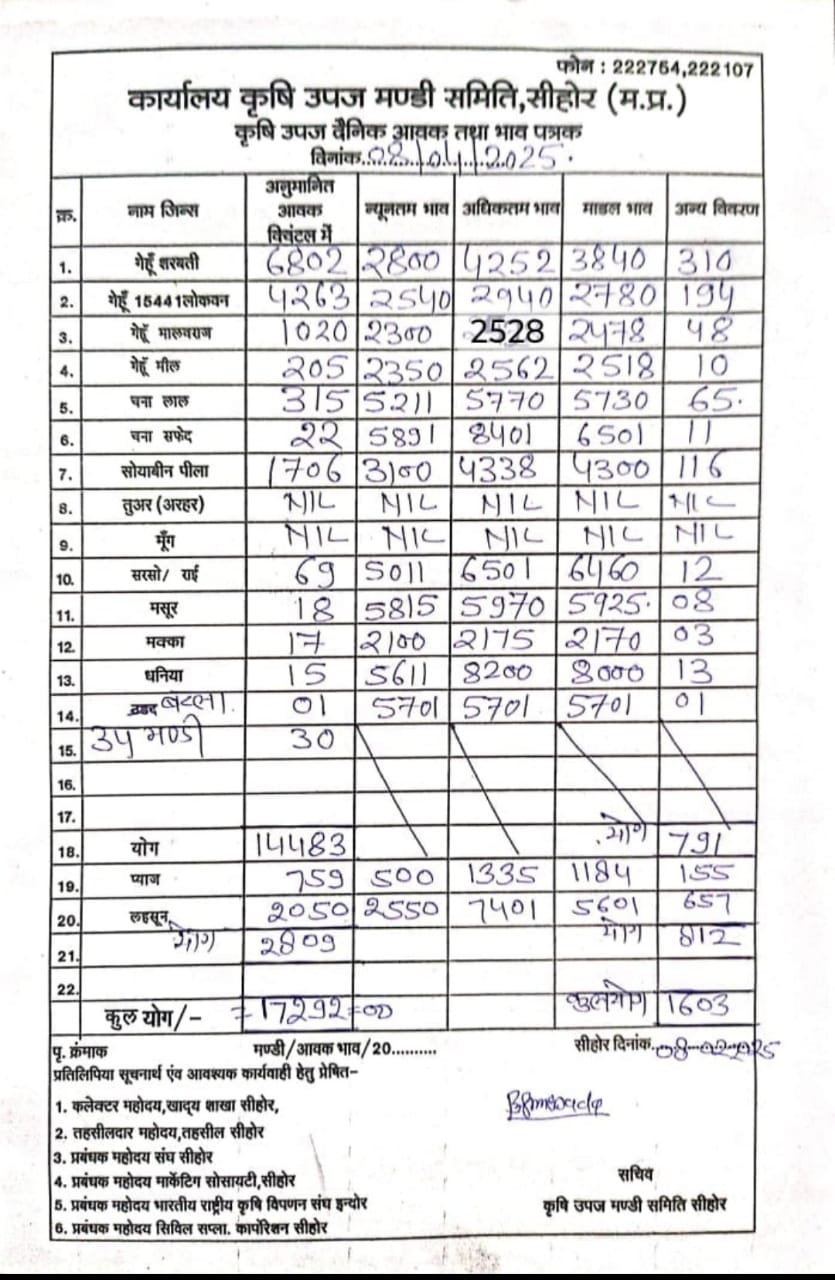 फोन : 222764,222107
कार्यालय कृषि उपज मण्डी समिति,सीहोर (म.प्र.)
कृषि उपज दैनिक आवक तथा भाव पत्रक
दिनांक..08/04/2025.
क्र. नाम जिन्स अनुमानित आवक क्विंटल में न्यूनतम भाव अधिकतम भाव माडल भाव अन्य विवरण
1. गेहूँ शरबती 6802 2800 4252 3840 310
2. गेहूँ 15441लोकवन 4263 2540 2940 2780 194
3. गेहूँ मालवराज 1020 2300 2528 2478 48
4. गेहूँ मील 205 2350 2562 2518 10
5. चना लाल 315 5211 5770 5730 65.
6. चना सफेद 22 5891 8401 6501 11
7. सोयाबीन पीला 1706 3100 4338 4300 116
8. तुअर (अरहर) NIL NIL NIL NIL NIL
9. मूँग NIL NIL NIL NIL NIL
10. सरसो/ राई 69 5011 6501 6460 12
11. मसूर 18 5815 5970 5925. 08
12. मक्का 17 2100 2175 2170 03
13. धनिया 15 5611 8200 8000 13
14. उडद बटला. 01 5701 5701. 5701 01
15. उप मण्डी 30
16.
17.
18. योग 14483 योग 791
19. प्याज 759 500 1335 1184 155
20. लहसून 2050 2550 7401 5601 657
21. योग 2809 योग 812
22.
कुल योग/- =17292=00 कुलयोग 1603
पृ. क्रंमाक मण्डी/आवक भाव/20.......... सीहोर दिनांक..08-02-2025
प्रतिलिपिया सूचनार्थ एंव आवश्यक कार्यवाही हेतु प्रेषित–
1. कलेक्टर महोदय,खाद्य शाखा सीहोर,
2. तहसीलदार महोदय,तहसील सीहोर
3. प्रबंधक महोदय संघ सीहोर
4. प्रबंधक महोदय मार्केटिग सोसायटी,सीहोर
5. प्रबंधक महोदय भारतीय राष्ट्रीय कृषि विपणन संघ इन्दोर
6. प्रबंधक महोदय सिविल सप्ला. कार्पोरेशन सीहोर
सचिव
कृषि उपज मण्डी समिति सीहोर